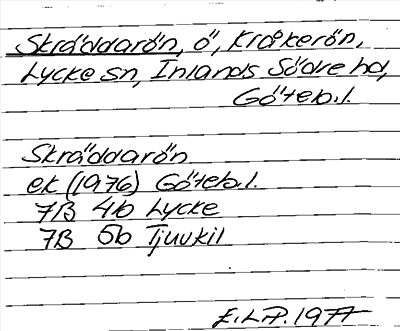 Skräddarön, ö, Kråkerön,
Lycke sn, Inlands Södre hd,
Göteb.l.
Skräddarön
ek (1976) Göteb.l.
7B 4b Lycke
7B 5b Tjuvkil
E.L.P. 1977